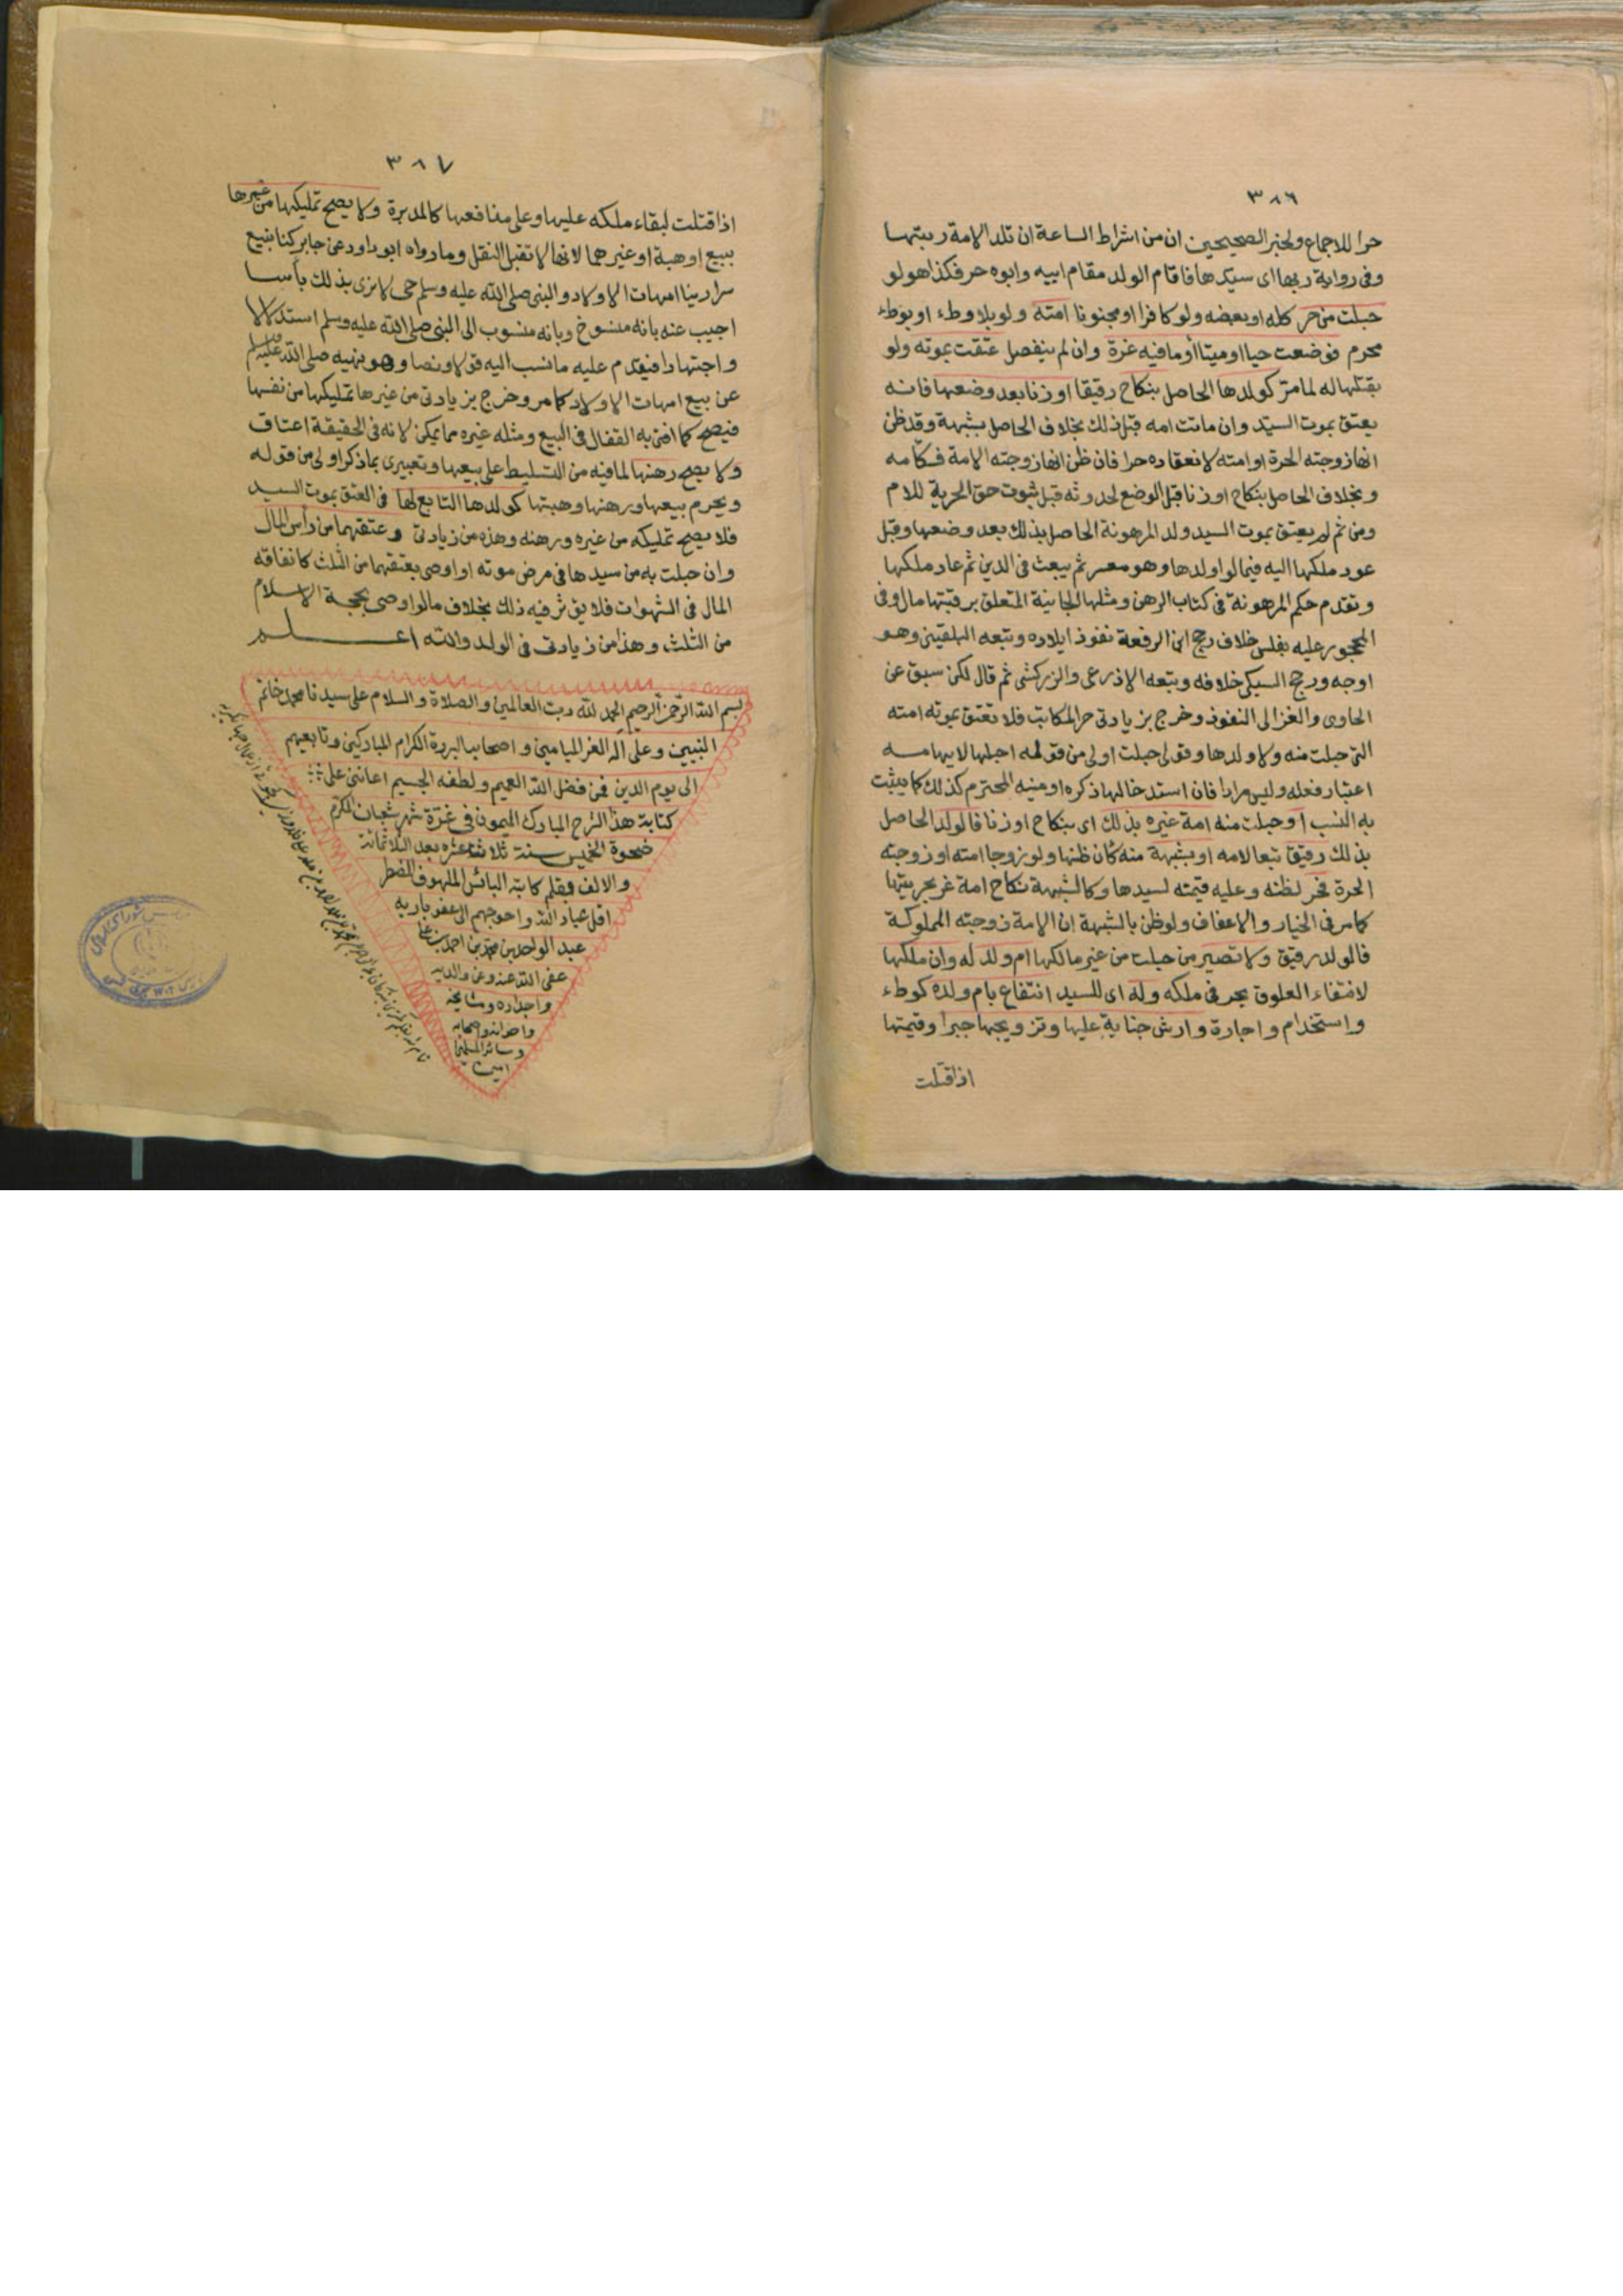 ٣٨٦
حرا للاجماع ولخبر الصحيحين ان من اشراط الساعة ان تلد الامة ربتها
وفى رواية ربها اى سيدها فاقام الولد مقام ابيه وابوه حر فكذا هو لو
حبلت من حر كله او بعضه ولو كافرا او مجنونا امته ولو بلا وطء او بوطء
محرم فوضعت حيا او ميتا او ما فيه غرة وان لم ينفصل عتقت بموته ولو
بقتلها له لما مر كولدها الحاصل بنكاح رقيقا او زنا بعد وضعها فانه
يعتق بموت السيد وان ماتت امه قبل ذلك بخلاف الحاصل بشبهة وقد ظن
انها زوجته الحرة او امته لانعقاده حرا فان ظن انها زوجته الامة فكامه
وبخلاف الحاصل بنكاح او زنا قبل الوضع لحدوثه قبل ثبوت حق الحرية للام
ومن ثم لم يعتق بموت السيد ولد المرهونة الحاصل بذلك بعد وضعها وقبل
عود ملكها اليه فيما لو اولدها وهو معسر ثم بيعت فى الدين ثم عاد ملكها
وتقدم حكم المرهونة فى كتاب الرهن ومثلها الجانية المتعلق برقبتها مال وفى
المحجور عليه بفلس خلاف رجح ابن الرفعة نفوذ ايلاده وتبعه البلقينى وهو
اوجه ورجح السبكى خلافه وتبعه الاذرعى والزركشى ثم قال لكن سبق عن
الحاوى والغزالى النفوذ وخرج بزيادتى حر المكاتب فلا تعتق بموته امته
التى حبلت منه ولا ولدها وقولى حبلت اولى من قوله احبلها لايهامه
اعتبار فعله وليس مرادا فان استدخالها ذكره او منيه المحترم كذلك كما يثبت
به النسب او حبلت منه امة غيره بذلك اى بنكاح او زنا فالولد الحاصل
بذلك رقيق تبعا لامه او بشبهة منه كان ظنها ولو زوجا امته او زوجته
الحرة فحر لظنه وعليه قيمته لسيدها وكالشبهة نكاح امة غر بحريتها
كما مر فى الخيار والاعفاف ولو ظن بالشبهة ان الامة زوجته المملوكة
فالولد رقيق ولا تصير من حبلت من غير مالكها ام ولد له وان ملكها
لانتفاء العلوق بحر فى ملكه وله اى للسيد انتفاع بام ولده كوطء
واستخدام واجارة وارش جناية عليها وتزويجها جبرا وقيمتها
اذا قتلت
٣٨٧
اذا قتلت لبقاء ملكه عليها وعلى منافعها كالمدبرة ولا يصح تمليكها من غيرها
ببيع او هبة او غيرهما لانها لا تقبل النقل وما رواه ابو داود عن جابر كنا نبيع
سرارينا امهات الاولاد والنبى صلى الله عليه وسلم حى لا نرى بذلك بأسا
اجيب عنه بانه منسوخ وبانه منسوب الى النبى صلى الله عليه وسلم استدلالا
واجتهادا فيقدم عليه ما نسب اليه قولا ونصا وهو نهيه صلى الله عليه وسلم
عن بيع امهات الاولاد كما مر وخرج بزيادتى من غيرها تمليكها من نفسها
فيصح كما افتى به القفال فى البيع ومثله غيره مما يمكن لانه فى الحقيقة اعتاق
ولا يصح رهنها لما فيه من التسليط على بيعها وتعبيرى بما ذكر اولى من قوله
ويحرم بيعها ورهنها وهبتها كولدها التابع لها فى العتق بموت السيد
فلا يصح تمليكه من غيره ورهنه وهذه من زيادتى وعتقهما من رأس المال
وان حبلت به من سيدها فى مرض موته او اوصى بعتقهما من الثلث كانفاقه
المال فى الشهوات فلا يؤثر فيه ذلك بخلاف ما لو اوصى بحجة الاسلام
من الثلث وهذا من زيادتى فى الولد والله اعلم
بسم الله الرحمن الرحيم الحمد لله رب العالمين والصلاة والسلام على سيدنا محمد خاتم
النبيين وعلى اله الغر الميامين واصحابه البررة الكرام المباركين وتابعيهم
الى يوم الدين فمن فضل الله العميم ولطفه الجسيم اعاننى على
كتابة هذا الشرح المبارك الميمون فى غرة شهر شعبان المكرم
ضحوة الخميس سنة ثلاث عشره بعد الثلاثمائة
والالف بقلم كاتبه البائس الملهوف المضطر
اقل عباد الله واحوجهم الى عفو باريه
عبد الواحد بن محمد بن احمد
عفى الله عنه وعن والديه
واجداده ومشايخه
واخوانه واصحابه
وسائر المسلمين
امين